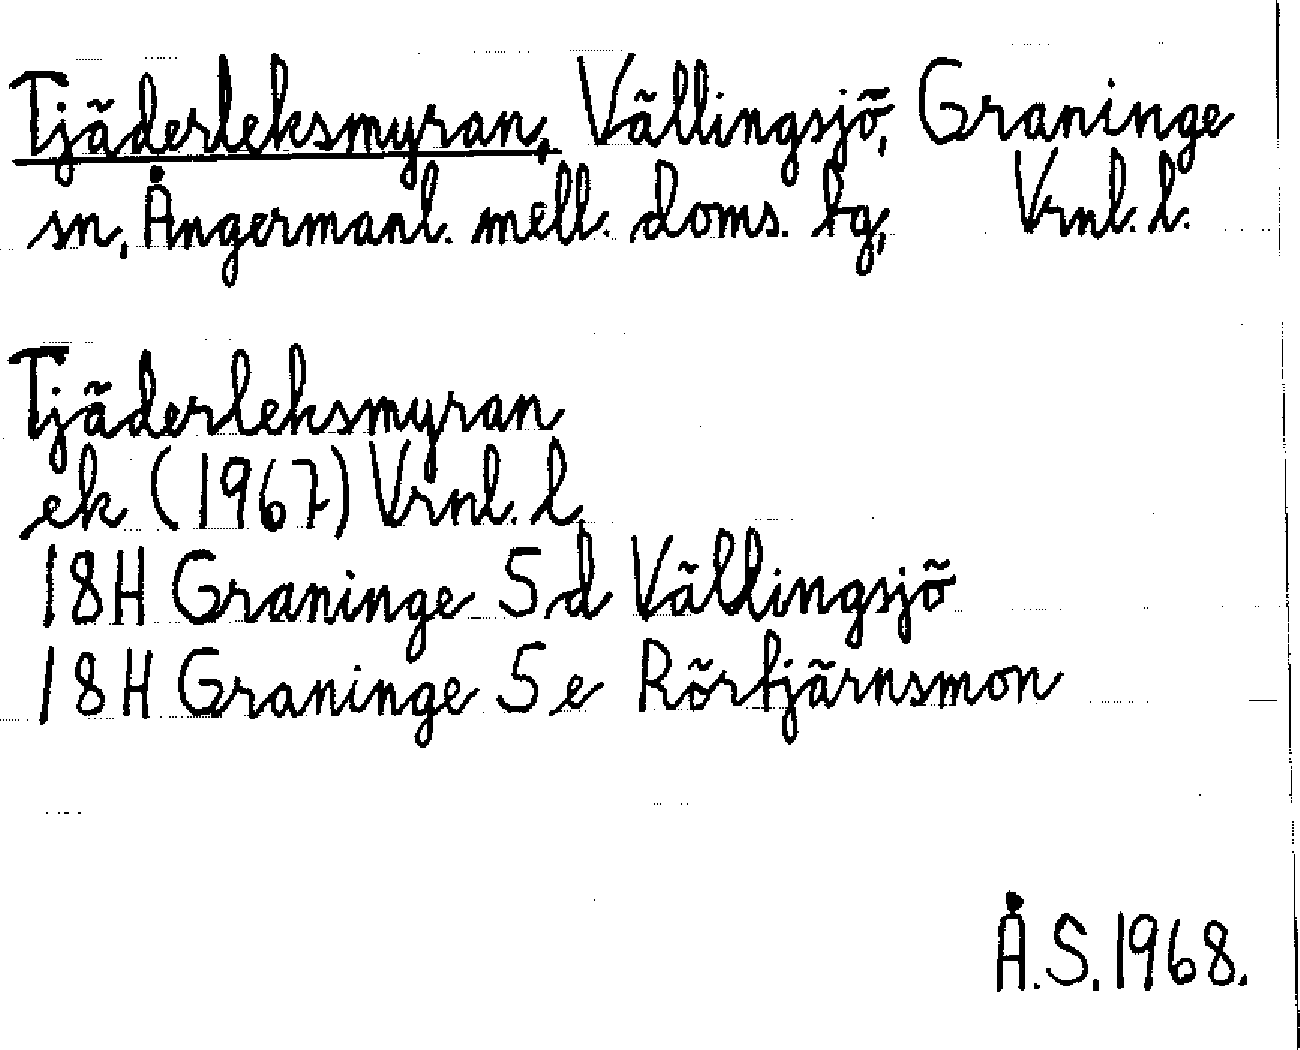 Tjäderleksmyran, Vällingsjö, Graninge
sn, Ångermanl. mell. doms. tg, Vrnl. l.
Tjäderleksmyran
ek (1967) Vrnl. l.
18H Graninge 5d Vällingsjö
18H Graninge 5e Rörtjärnsmon
Å.S. 1968.